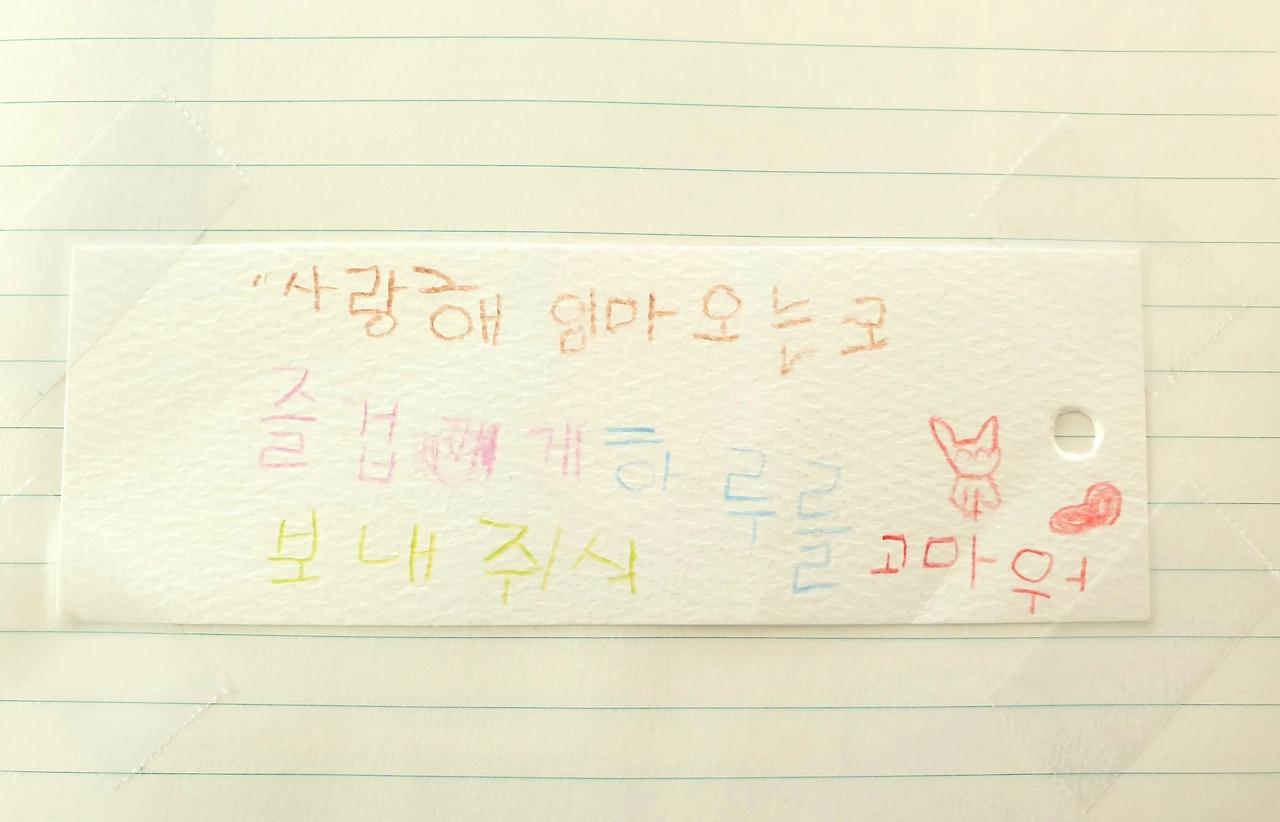 "사랑해 엄마 오는 코
즐겁게 하루를
보내 줘서
고마워